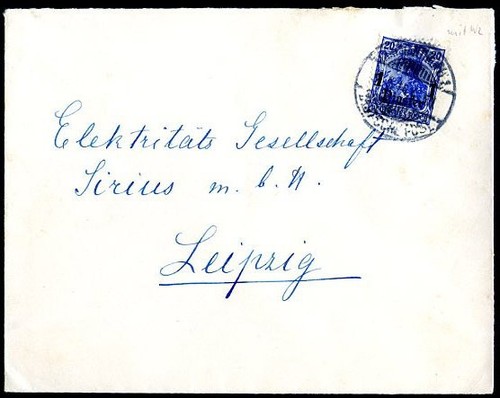 mit Wz
20 20
1
DEUTSCHE POST
Elektritäts Gesellschaft
Sirius m. b. H.
Leipzig